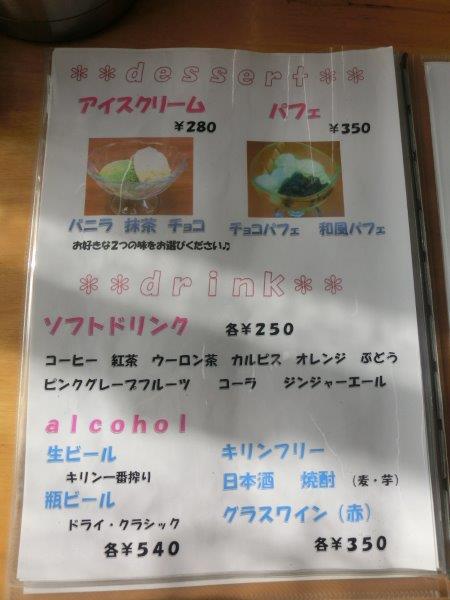 **dessert**
アイスクリーム パフェ
¥280 ¥350
バニラ 抹茶 チョコ チョコパフェ 和風パフェ
お好きな2つの味をお選びください♪
**drink**
ソフトドリンク 各¥250
コーヒー 紅茶 ウーロン茶 カルピス オレンジ ぶどう
ピンクグレープフルーツ コーラ ジンジャーエール
alcohol
生ビール キリンフリー
キリン一番搾り 日本酒 焼酎 (麦・芋)
瓶ビール グラスワイン(赤)
ドライ・クラシック
各¥540 各¥350